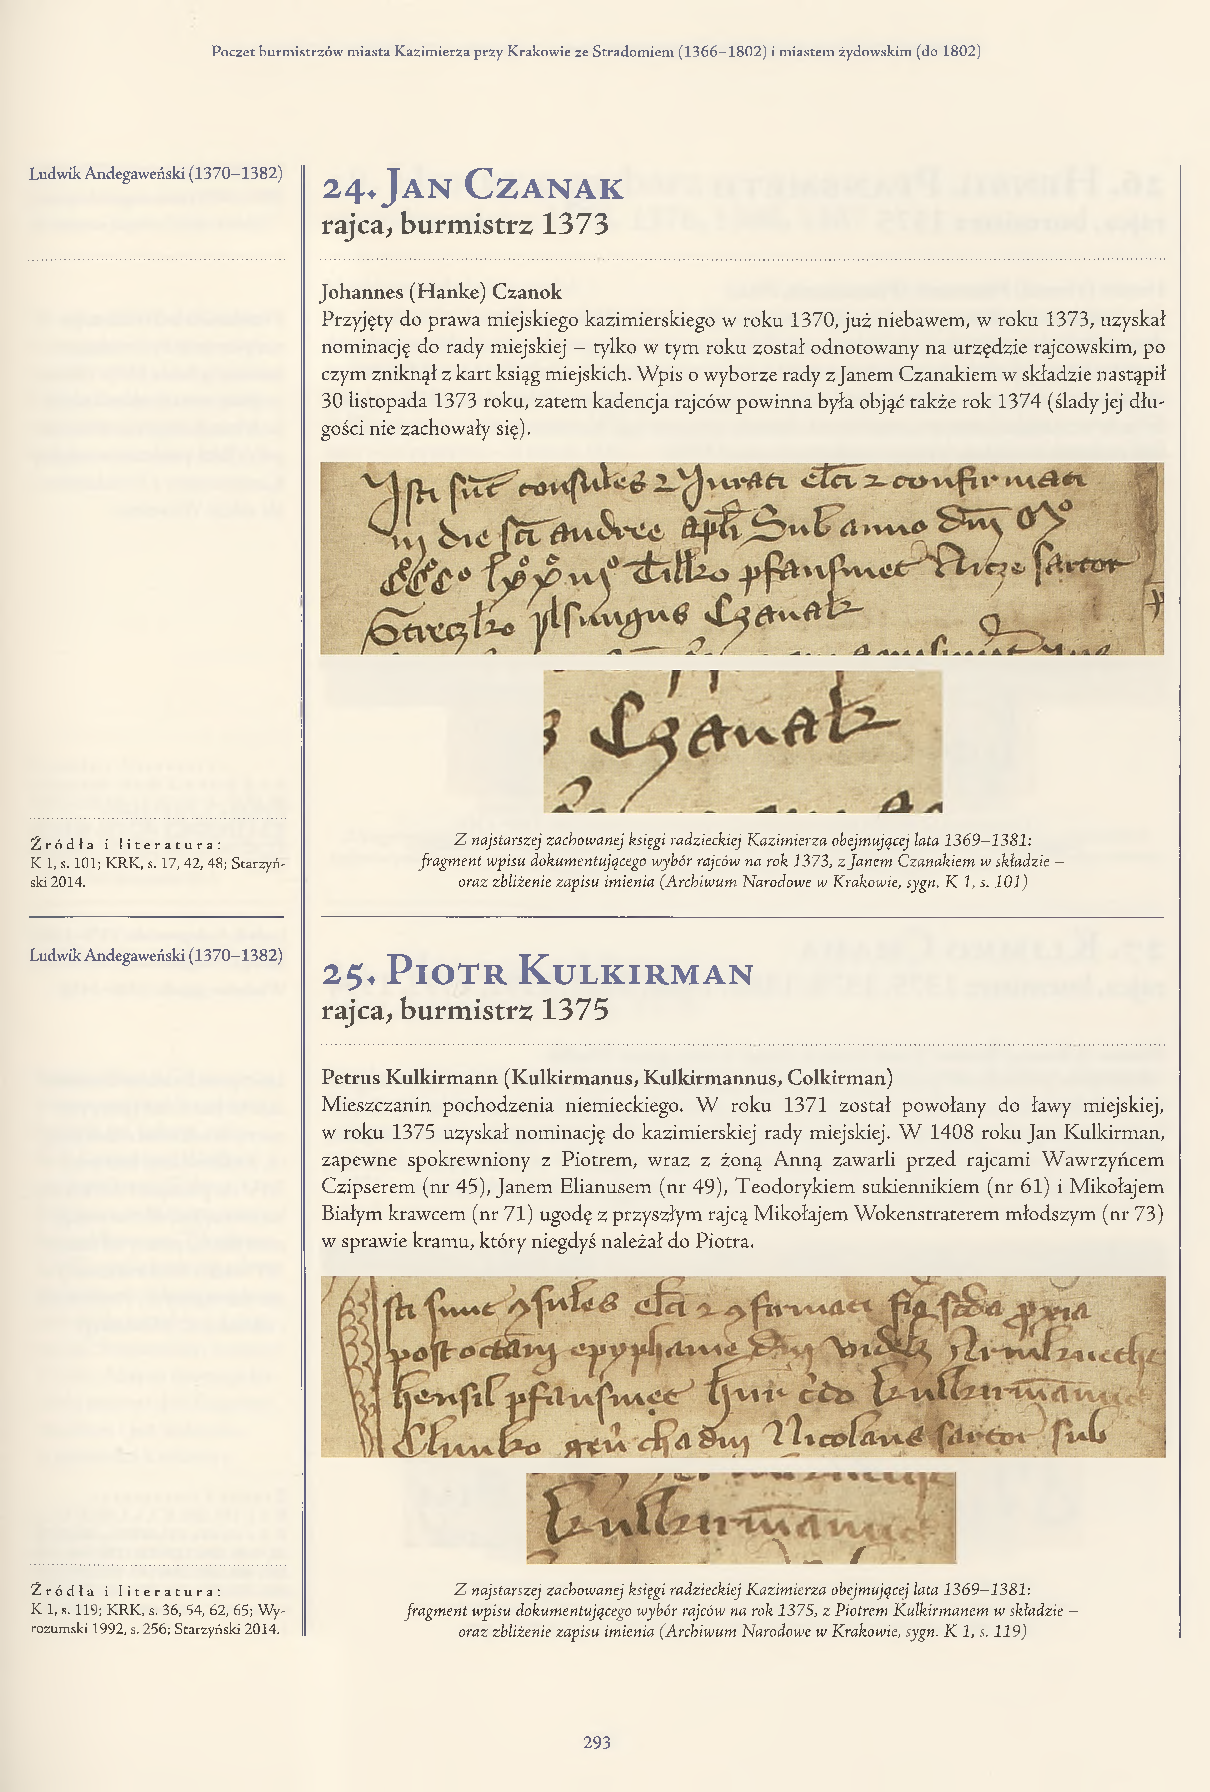 Poczet burmistrzów miasta Kazimierza przy Krakowie ze Stradomiem (1366–1802) i miastem żydowskim (do 1802)
Ludwik Andegaweński (1370–1382)
24. Jan Czanak
rajca, burmistrz 1373
Johannes (Hanke) Czanok
Przyjęty do prawa miejskiego kazimierskiego w roku 1370, już niebawem, w roku 1373, uzyskał
nominację do rady miejskiej – tylko w tym roku został odnotowany na urzędzie rajcowskim, po
czym zniknął z kart ksiąg miejskich. Wpis o wyborze rady z Janem Czanakiem w składzie nastąpił
30 listopada 1373 roku, zatem kadencja rajców powinna była objąć także rok 1374 (ślady jej dłu-
gości nie zachowały się).
Czanak
Źródła i literatura:
K 1, s. 101; KRK, s. 17, 42, 48; Starzyń-
ski 2014.
Z najstarszej zachowanej księgi radzieckiej Kazimierza obejmującej lata 1369–1381:
fragment wpisu dokumentującego wybór rajców na rok 1373, z Janem Czanakiem w składzie –
oraz zbliżenie zapisu imienia (Archiwum Narodowe w Krakowie, sygn. K 1, s. 101)
Ludwik Andegaweński (1370–1382)
25. Piotr Kulkirman
rajca, burmistrz 1375
Petrus Kulkirmann (Kulkirmanus, Kulkirmannus, Colkirman)
Mieszczanin pochodzenia niemieckiego. W roku 1371 został powołany do ławy miejskiej,
w roku 1375 uzyskał nominację do kazimierskiej rady miejskiej. W 1408 roku Jan Kulkirman,
zapewne spokrewniony z Piotrem, wraz z żoną Anną zawarli przed rajcami Wawrzyńcem
Czipserem (nr 45), Janem Elianusem (nr 49), Teodorykiem sukiennikiem (nr 61) i Mikołajem
Białym krawcem (nr 71) ugodę z przyszłym rajcą Mikołajem Wokenstraterem młodszym (nr 73)
w sprawie kramu, który niegdyś należał do Piotra.
Źródła i literatura:
K 1, s. 119; KRK, s. 36, 54, 62, 65; Wy-
rozumski 1992, s. 256; Starzyński 2014.
Z najstarszej zachowanej księgi radzieckiej Kazimierza obejmującej lata 1369–1381:
fragment wpisu dokumentującego wybór rajców na rok 1375, z Piotrem Kulkirmanem w składzie –
oraz zbliżenie zapisu imienia (Archiwum Narodowe w Krakowie, sygn. K 1, s. 119)
293